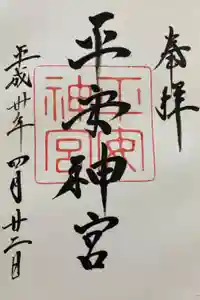 奉拝
平安神宮
平安神宮
平成卅年四月廿二日